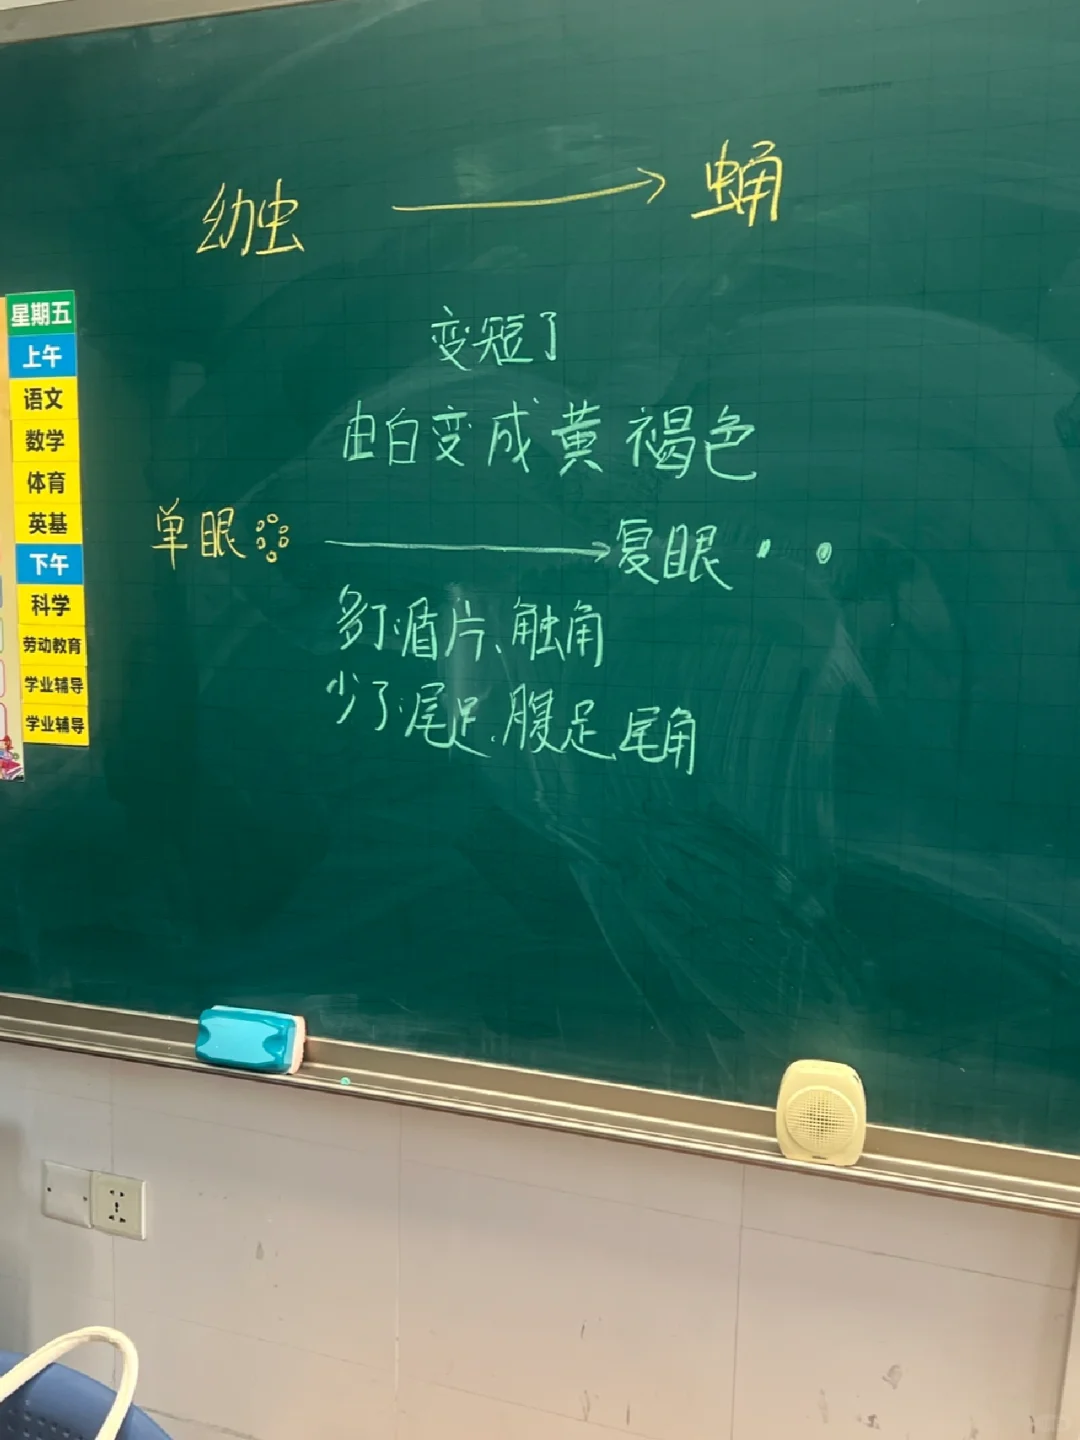 幼虫 → 蛹
变短了
由白变成黄褐色
单眼 → 复眼
多了:盾片、触角
少了:尾足、腹足、尾角
星期五
上午
语文
数学
体育
英基
下午
科学
劳动教育
学业辅导
学业辅导